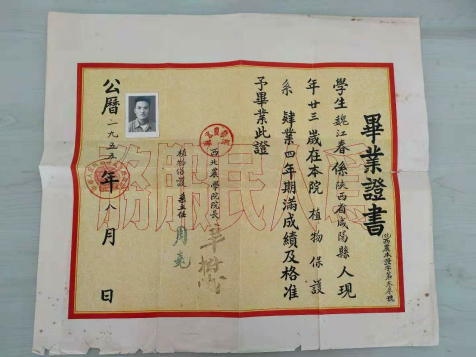 畢業證書
學生魏江春係陝西省咸陽縣人現
年廿三歲在本院植物保護
系肄業四年期滿成績及格准
予畢業此證
西北農學院院長
植物保護系主任
公曆一九五五年八月 日
為人民服務